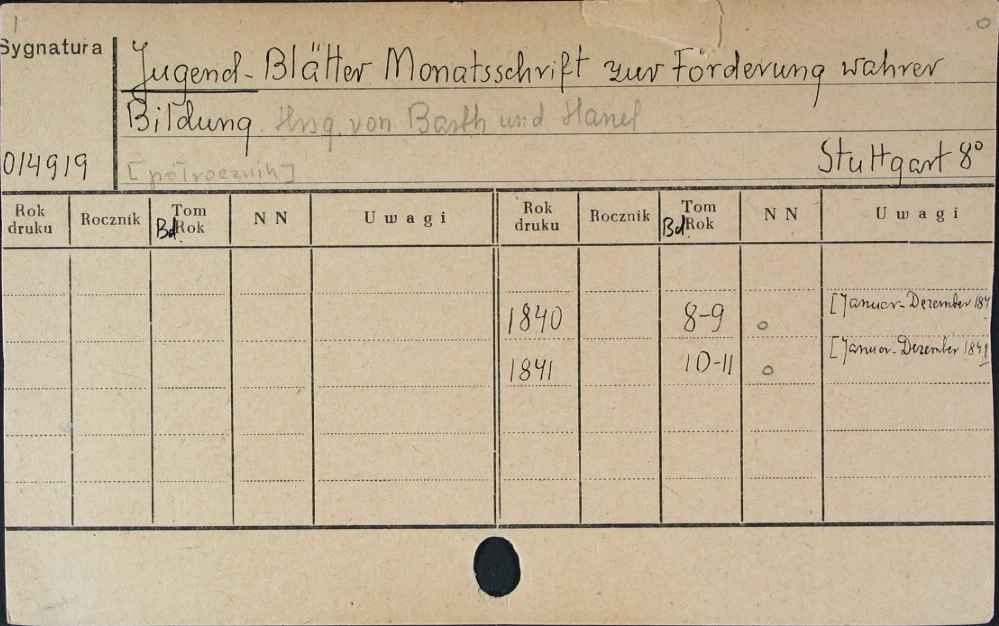 Sygnatura
Jugend-Blätter Monatsschrift zur Förderung wahrer
Bildung. Hrsg. von Barth und Hänel
014919
[półrocznik]
Stuttgart 8°
Rok druku Rocznik Tom Bd. Rok N N Uwagi Rok druku Rocznik Tom Bd. Rok N N Uwagi
1840 8-9 o [Januar-Dezember 184
1841 10-11 o [Januar-Dezember 1841]